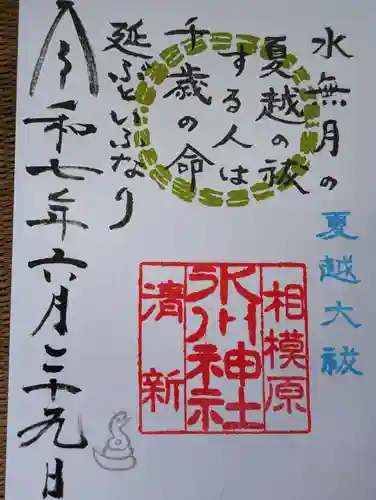 水無月の
夏越の祓
する人は
千歳の命
延ぶといふなり
夏越大祓
相模原
氷川神社
清新
令和七年六月二十九日